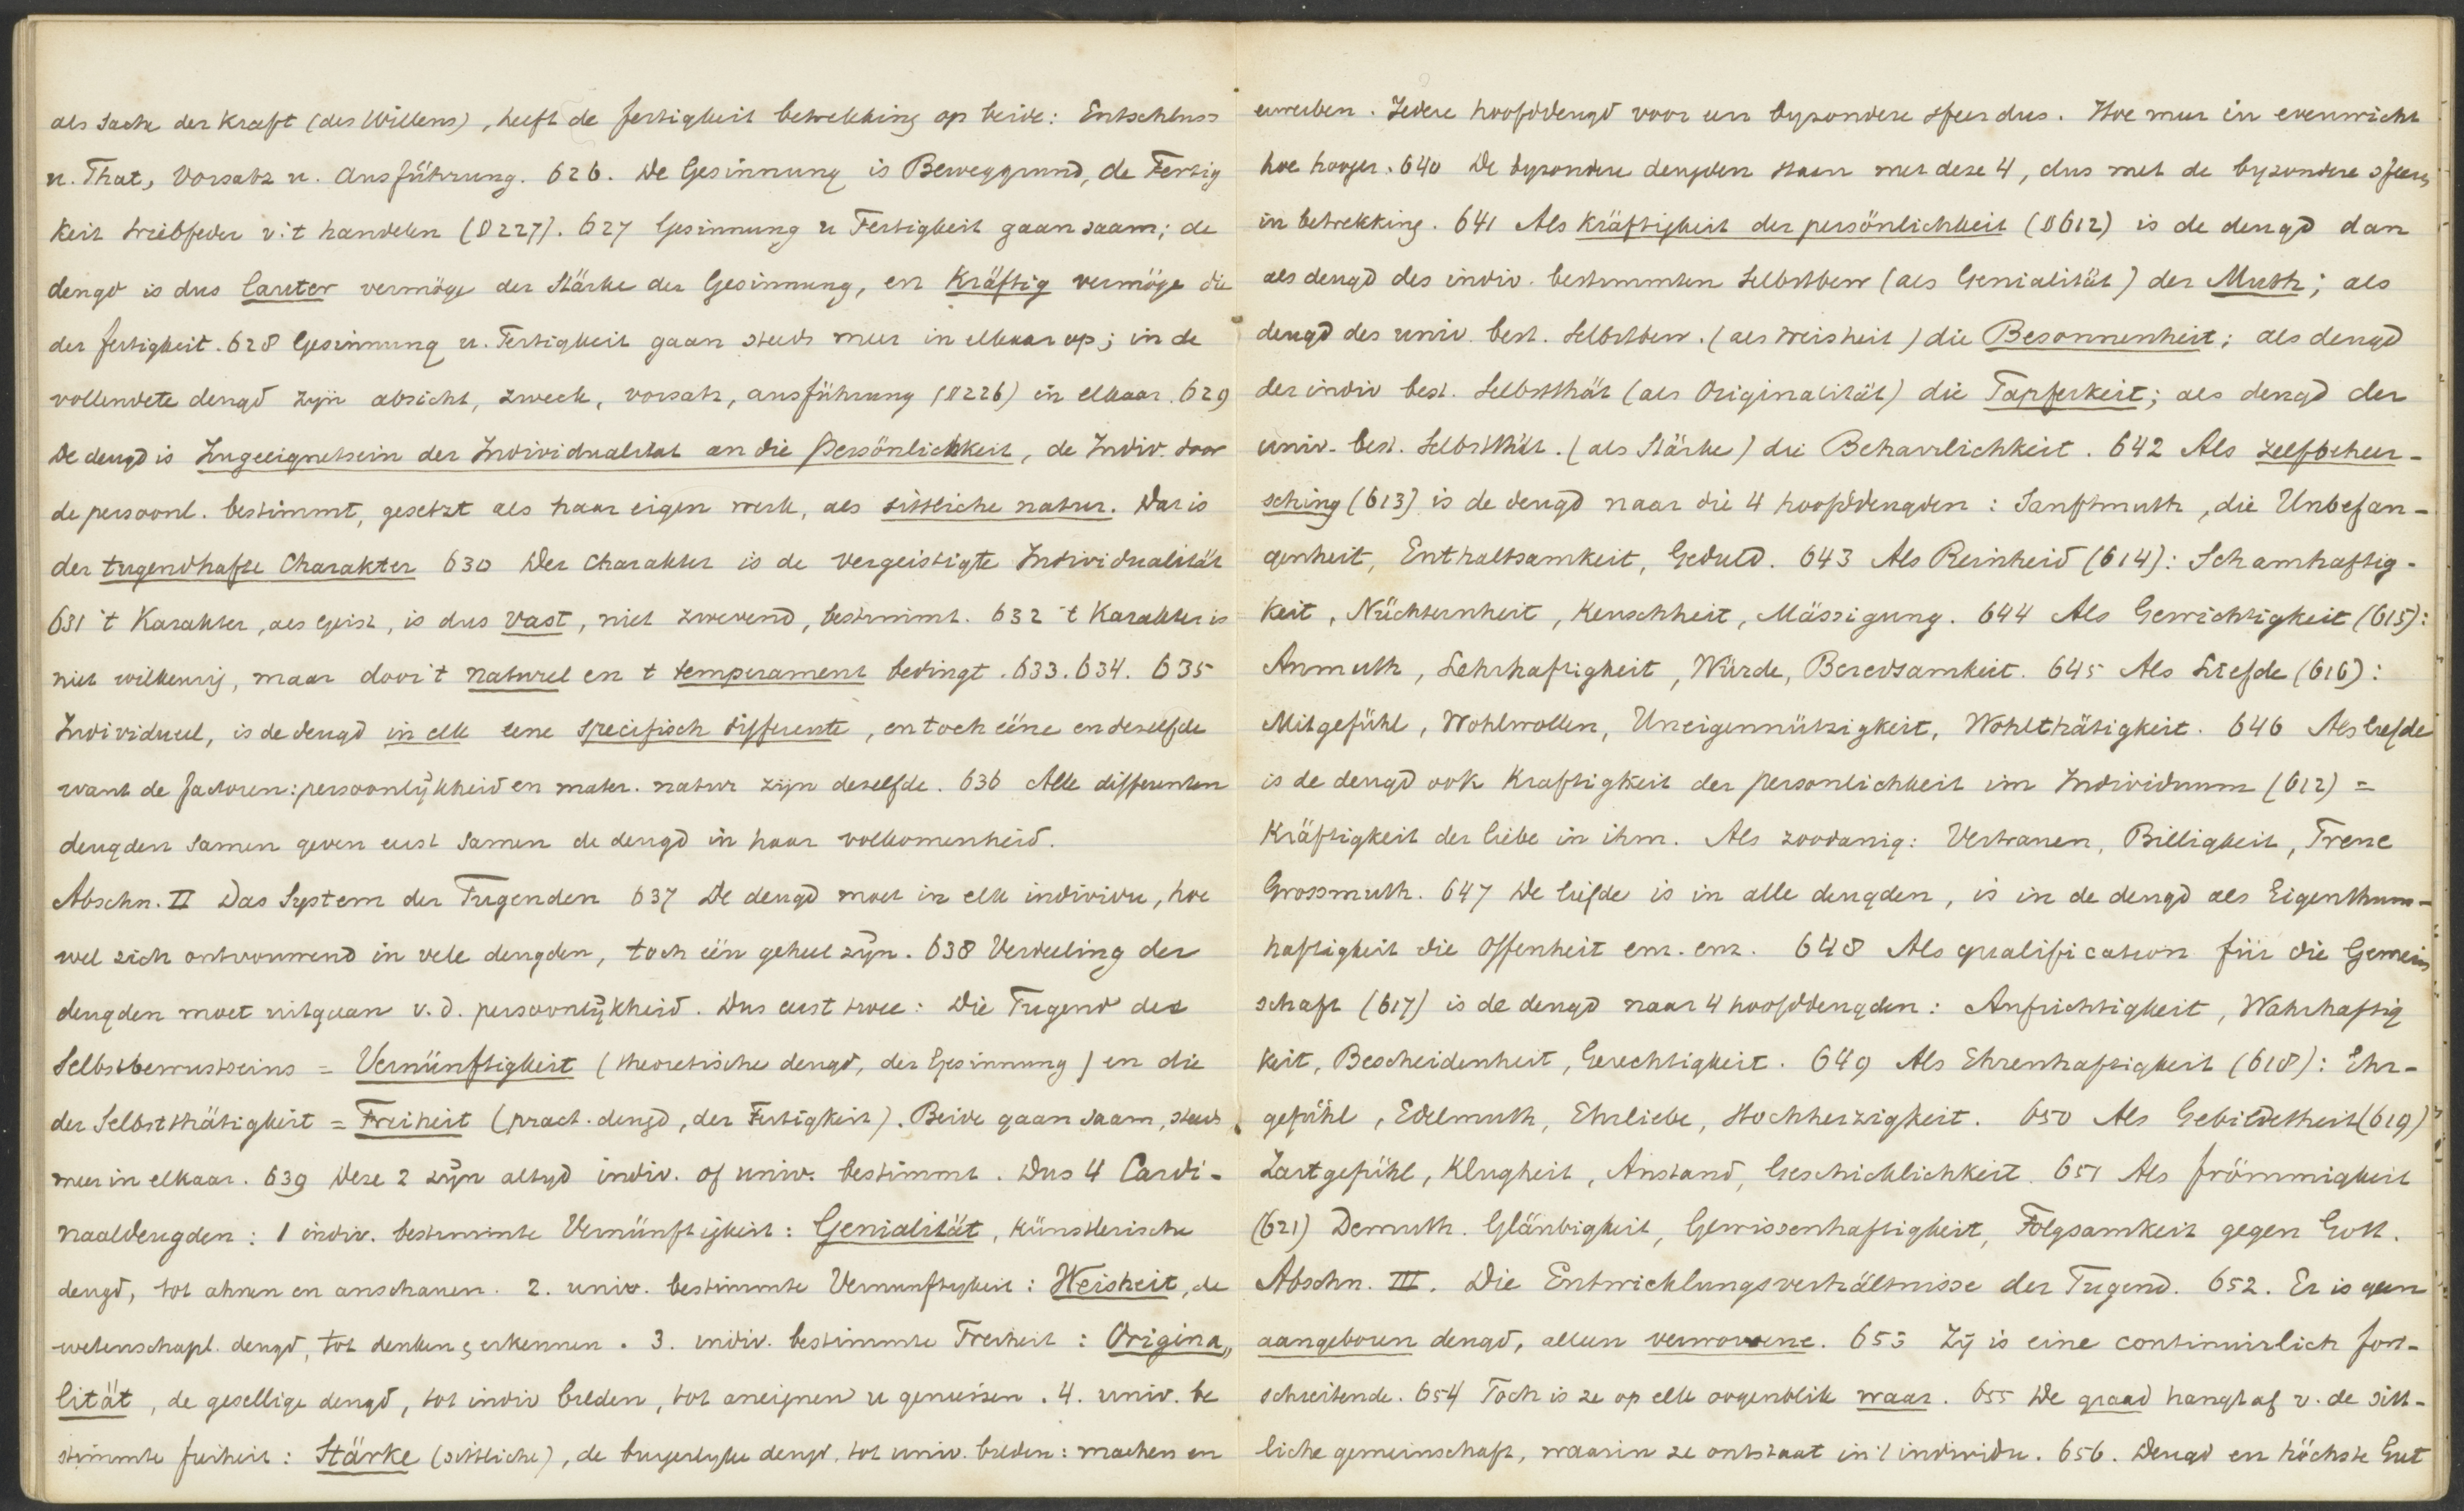 als Sache der Kraft (des Willens), heeft de fertigkeit betrekking op beide: Entschluss
u. That, Vorsatz u. Ausführung. 626. De Gesinnung is Beweggrund, de Fertig
keit triebfeder v. 't handelen (§ 227). 627 Gesinnung u Fertigkeit gaan saam; de
deugd is dus lauter vermöge der Stärke der Gesinnung, en Kräftig vermöge die
der fertigkeit. 628 Gesinnung u. Fertigkeit gaan steeds meer in elkaar op; in de
vollendete deugd zijn absicht, zweck, vorsatz, ausführung (§ 226) in elkaar. 629
De deugd is Zugeeignetsein der Individualitat an die Persönlichkeit, de Indiv. door
de persoonl. bestimmt, gesetzt als haar eigen werk, als sittliche natur. Dat is
der tugendhafte Charakter 630 Der Charakter is de vergeistigte Individualität
631 't Karakter, als Geist, is dus vast, niet zwevend, bestimmt. 632 't Karakter is
niet willkeurig, maar door 't naturel en t temperament bedingt. 633. 634. 635
Individueel, is de deugd in elk eene specifisch differente, en toch ééne en dezelfde
want de factoren: persoonlijkheid en mater. natur zijn dezelfde. 636 Alle differenten
deugden samen geven eerst samen de deugd in haar volkomenheid.
Abschn. II Das System der Tugenden 637 De deugd moet in elk individu, hoe
wel zich ontvouwend in vele deugden, toch één geheel zijn. 638 Verdeeling der
deugden moet uitgaan v. d. persoonlijkheid. Dus eerst twee: Die Tugend des
Selbstbewustseins = Vernünftigkeit (theoretische deugd, der Gesinnung) en die
der Selbstthätigkeit = Freiheit (pract. deugd, der Fertigkeit). Beide gaan saam, steeds
meer in elkaar. 639 Deze 2 zijn altyd indiv. of univ. bestimmt. Dus 4 Cardi-
naaldeugden: 1 indiv. bestimmte Vernünftigkeit: Genialität, künstlerische
deugd, tot ahnen en anschauen. 2. univ. bestimmte Vernunftigkeit: Weisheit, de
wetenschapl. deugd, tot denken & erkennen. 3. indiv. bestimmte Freiheit: Origina„
lität, de gesellige deugd, tot indiv bilden, tot aneignen u geniessen. 4. univ. be
stimmte freiheit: Stärke (sittliche), de burgerlyke deugd, tot univ. bilden: machen en
erwerben. Iedere hoofddeugd voor een byzondere sfeer dus. Hoe meer in evenwicht
hoe hooger. 640 De byzondere deugden staan met deze 4, dus met de byzondere sfeeren
in betrekking. 641 Als Kräftigkeit der persönlichkeit (§ 612) is de deugd dan
als deugd des indiv. bestimmten Selbstbew (als Genialität) der Muth; als
deugd des univ. best. Selbstbew. (als Weisheit) die Besonnenheit; als deugd
der indiv best. Selbstthät (als Originalität) die Tapferkeit; als deugd der
univ. best. Selbstthät. (als Stärke) die Beharrlichkeit. 642 Als zelfbeheer-
sching (613) is de deugd naar die 4 hoofddeugden: Sanftmuth, die Unbefan-
genheit, Enthaltsamkeit, Geduld. 643 Als Reinheid (614): Schamhaftig-
keit, Nüchternheit, Keuschheit, Mässigung. 644 Als Gewichtigkeit (615):
Anmuth, Lehrhaftigkeit, Würde, Beredsamkeit. 645 Als Liefde (616):
Mitgefühl, Wohlwollen, Uneigennützigkeit, Wohlthätigkeit. 646 Als liefde
is de deugd ook Kraftigkeit der personlichkeit im Individuum (612) =
Kräftigkeit der liebe in ihm. Als zoodanig: Vertrauen, Billigkeit, Treue
Grossmuth. 647 De liefde is in alle deugden, is in de deugd als Eigenthum-
haftigkeit die Offenheit enz. enz. 648 Als qualification für die Gemein
schaft (617) is de deugd naar 4 hoofddeugden: Aufrichtigkeit, Wahrhaftig
keit, Bescheidenheit, Gerechtigkeit. 649 Als Ehrenhaftigkeit (618): Ehr-
gefühl, Edelmuth, Ehrliebe, Hochherzigkeit. 650 Als Gebildetheit (619)
Zartgefühl, Klugheit, Anstand, Geschicklichkeit. 651 Als frömmigkeit
(621) Demuth. Gläubigkeit, Gewissenhaftigkeit, Folgsamkeit gegen Gott.
Abschn. III. Die Entwicklungsverhältnisse der Tugend. 652. Er is geen
aangeboren deugd, alleen verworvene. 653 Zij is eine continuirlich fort-
schreitende. 654 Toch is ze op elk oogenblik waar. 655 De graad hangt af v. de sitt-
liche gemeinschaft, waarin ze ontstaat in 't individu. 656. Deugd en höchste Gut